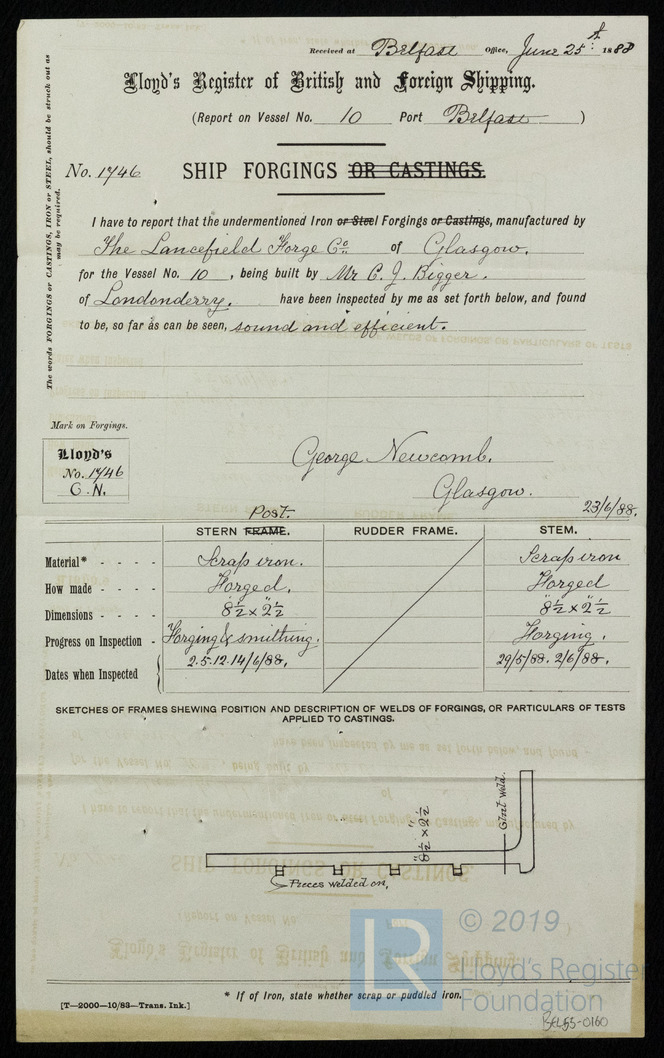 Received at Belfast Office, June 25th 1888
Lloyd's Register of British and Foreign Shipping.
(Report on Vessel No. 10 Port Belfast )
No. 1746 SHIP FORGINGS OR CASTINGS.
The words FORGINGS or CASTINGS, IRON or STEEL, should be struck out as may be required.
I have to report that the undermentioned Iron or Steel Forgings or Castings, manufactured by
The Lancefield Forge Co. of Glasgow.
for the Vessel No. 10, being built by Mr C. J. Bigger.
of Londonderry. have been inspected by me as set forth below, and found
to be, so far as can be seen, sound and efficient.
Mark on Forgings.
Lloyd's
No. 1746
G.N.
George Newcomb.
Glasgow.
23/6/88.
Post.
STERN FRAME. RUDDER FRAME. STEM.
Material* - - - - Scrap iron. Scrap iron
How made - - - - Forged. Forged
Dimensions - - - - 8½" x 2½" 8½" x 2½"
Progress on Inspection - Forging & smithing. Forging.
Dates when Inspected 2.5.12.14/6/88. 29/5/88. 2/6/88.
SKETCHES OF FRAMES SHEWING POSITION AND DESCRIPTION OF WELDS OF FORGINGS, OR PARTICULARS OF TESTS
APPLIED TO CASTINGS.
8½" x 2½"
Glut weld.
Pieces welded on,
© 2019
LR
Lloyd's Register
Foundation
* If of Iron, state whether scrap or puddled iron.
[T—2000—10/83—Trans. Ink.]
BEL55-0160